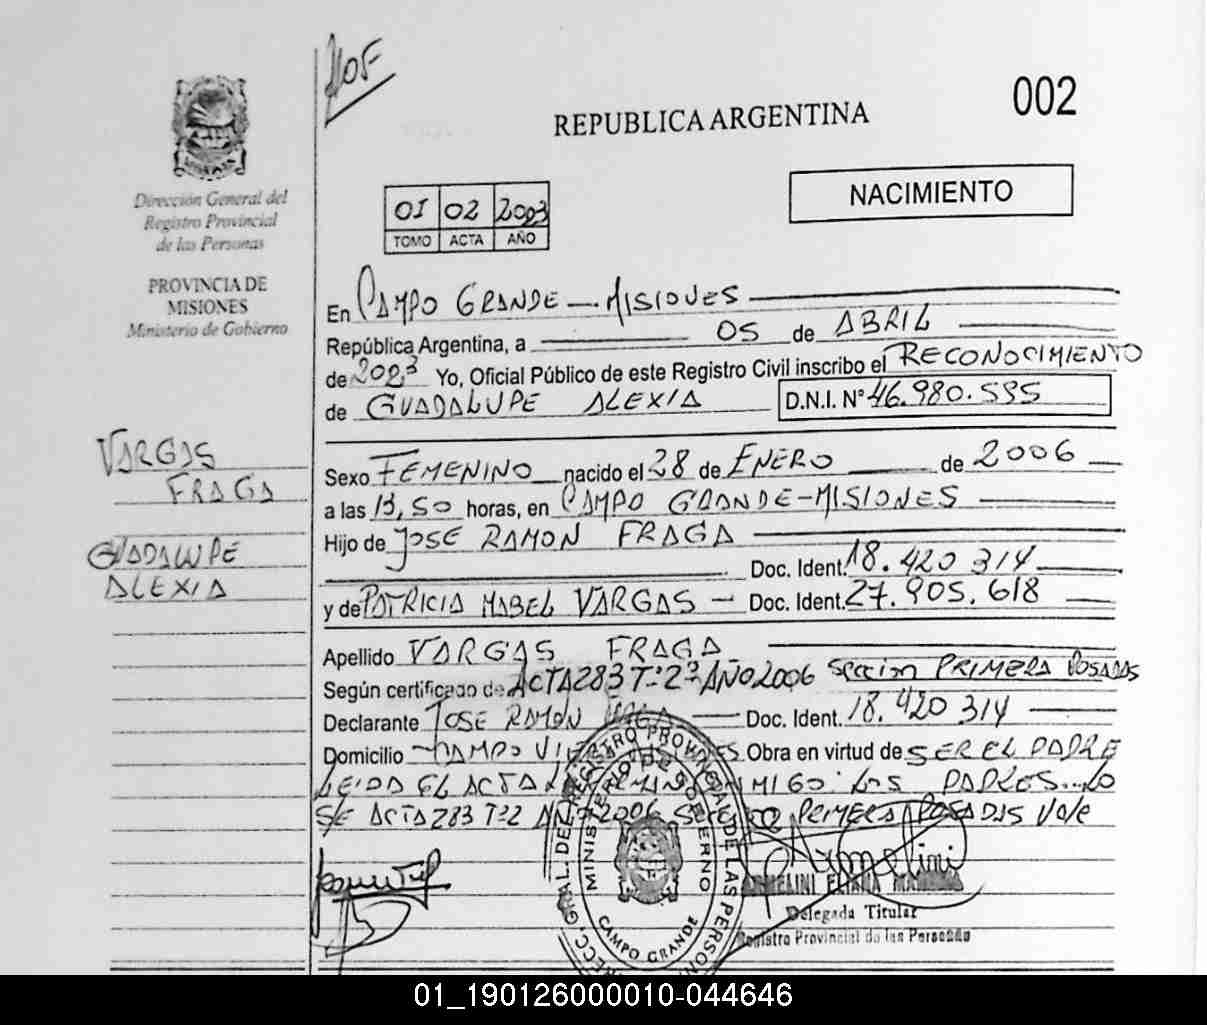 REPUBLICA ARGENTINA
002
Dirección General del
Registro Provincial
de las Personas
PROVINCIA DE
MISIONES
Ministerio de Gobierno
01 02 2003
TOMO ACTA AÑO
NACIMIENTO
En CAMPO GRANDE - MISIONES
República Argentina, a 05 de ABRIL
de 2003 Yo, Oficial Público de este Registro Civil inscribo el RECONOCIMIENTO
de GUADALUPE ALEXIA D.N.I. N° 46.980.595
VARGAS
FRAGA
GUADALUPE
ALEXIA
Sexo FEMENINO nacido el 28 de ENERO de 2006
a las 13,50 horas, en CAMPO GRANDE - MISIONES
Hijo de JOSE RAMON FRAGA
Doc. Ident. 18.420 314
y de PATRICIA MABEL VARGAS - Doc. Ident. 27.905.618
Apellido VARGAS FRAGA
Según certificado de ACTA 283 Tº 2º AÑO 2006 Seccion PRIMERA POSADAS
Declarante JOSE RAMON Doc. Ident. 18.420 314
Domicilio CAMPO Obra en virtud de SER EL PADRE
LEIDA EL ACTA LOS PADRES
ACTA 283 Tº 2 2006 PRIMERA POSADAS Vale
DEL REGISTRO PROVINCIAL DE LAS PERSONAS
MINISTERIO DE GOBIERNO
CAMPO GRANDE
Delegada Titular
Registro Provincial de las Personas
01_190126000010-044646